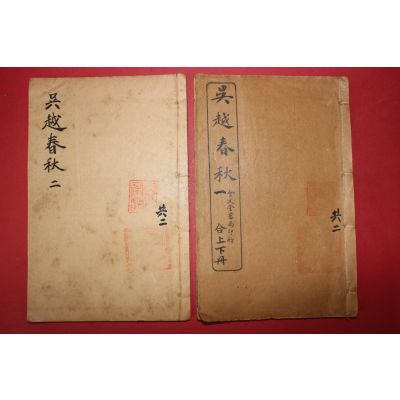 吳越春秋 一
合上下冊
共二
吳越春秋 二
共二